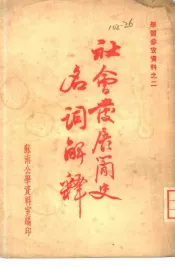 學習參考資料之二
102-26
社會發展簡史
名詞解釋
蘇南公學資料室編印